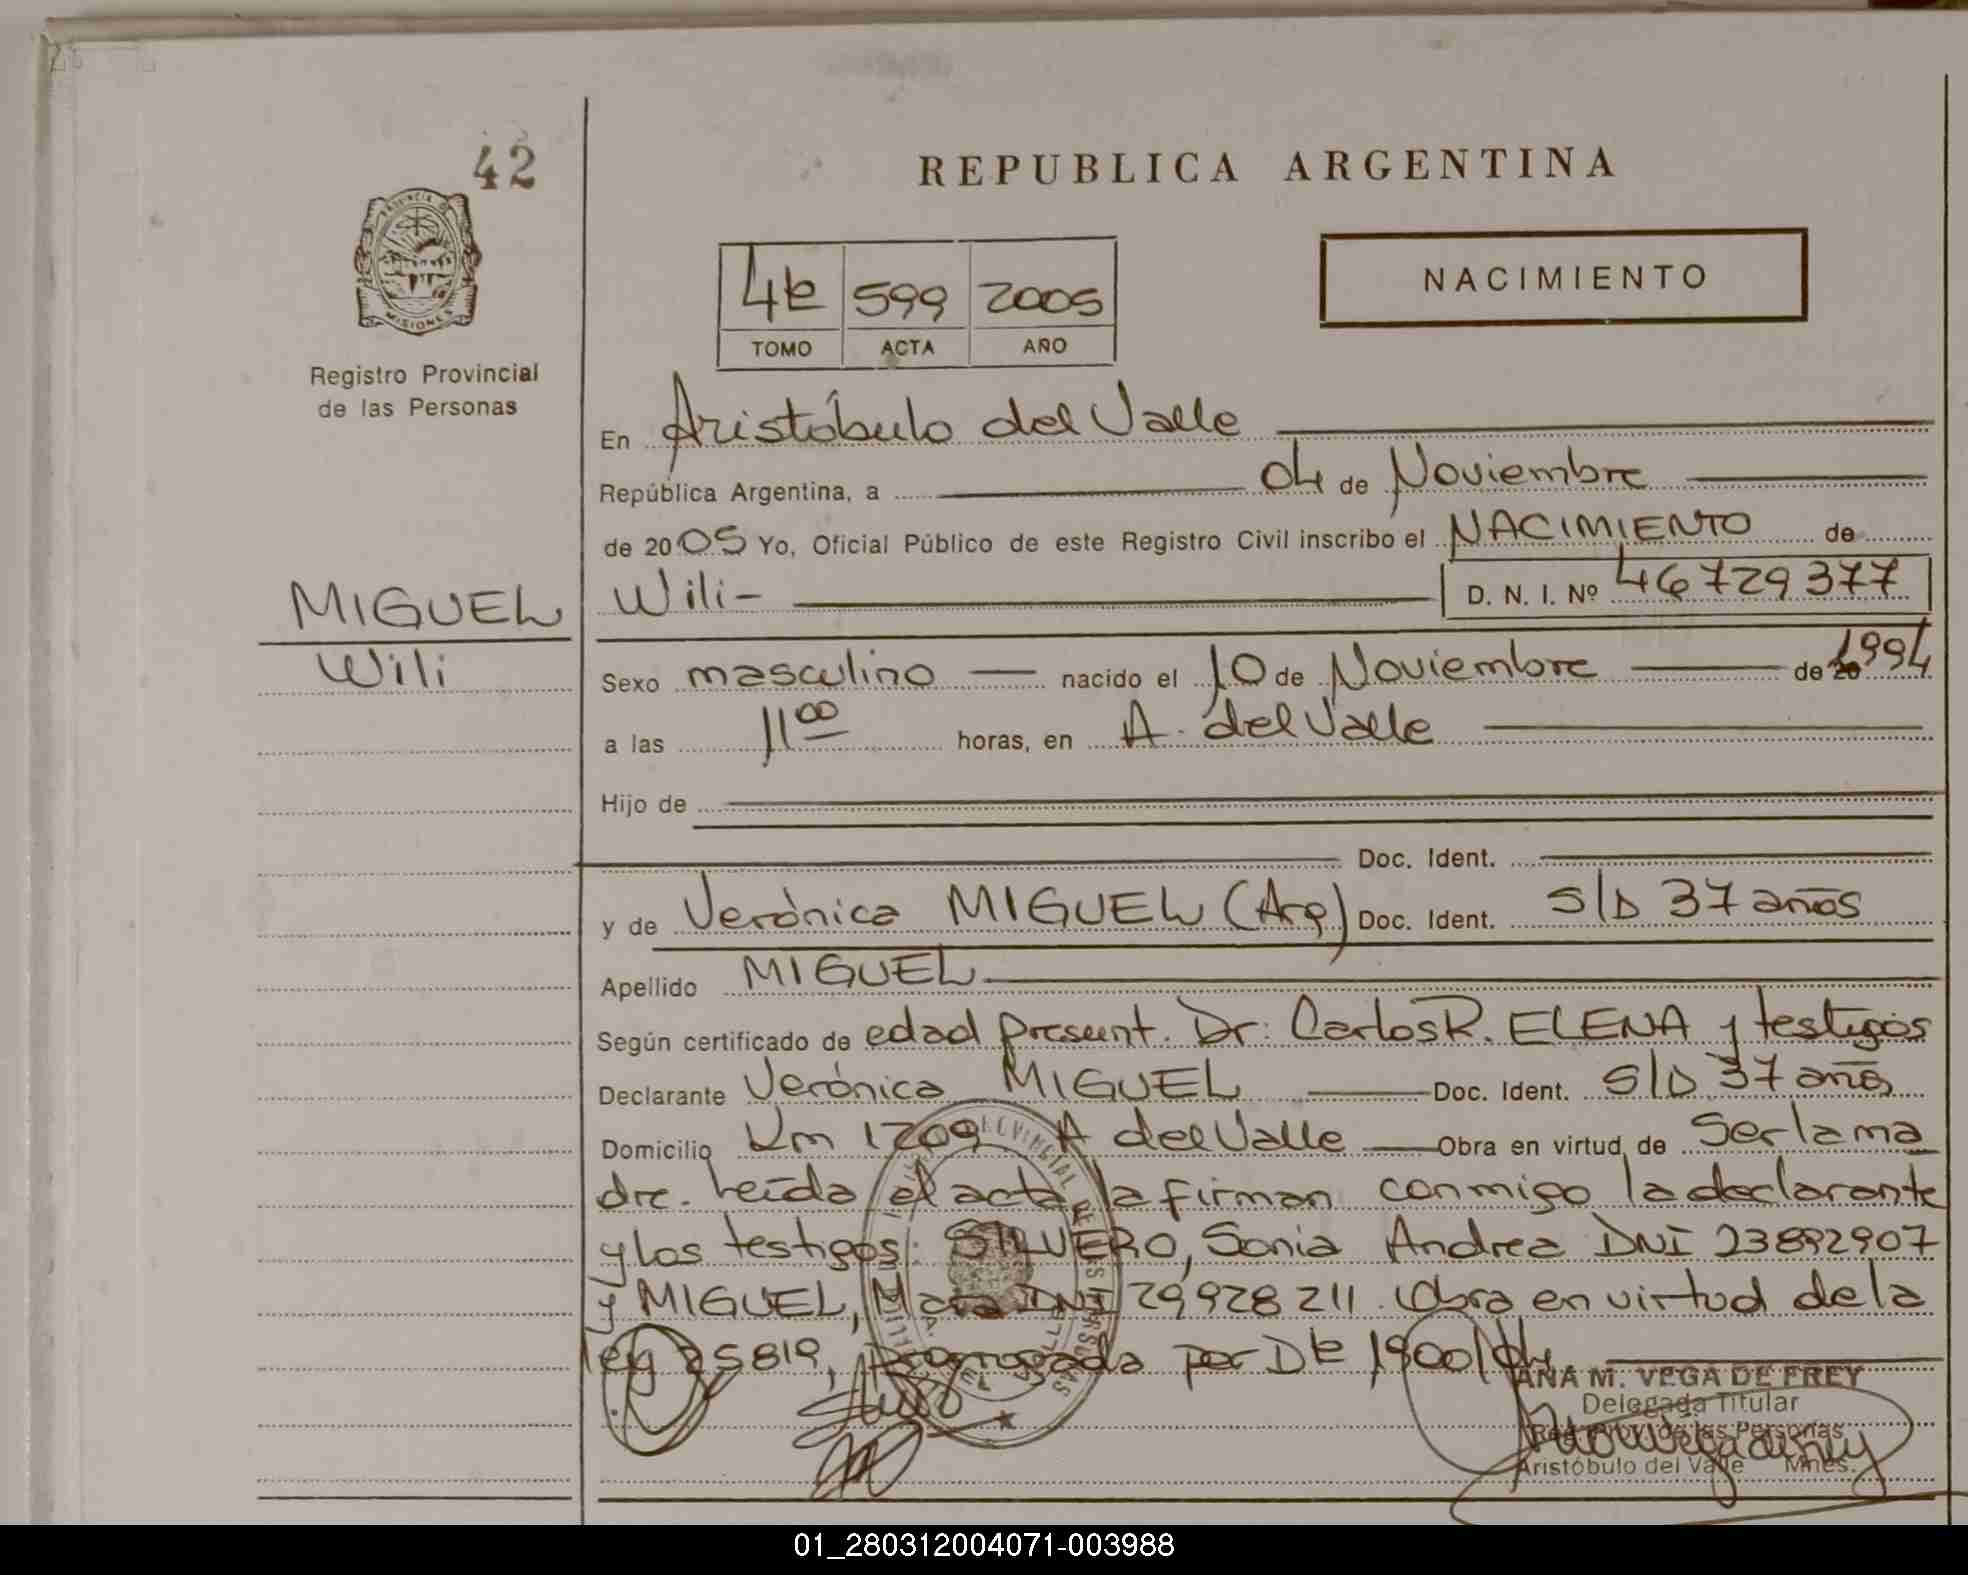 42
PROVINCIA DE
MISIONES
Registro Provincial
de las Personas
REPUBLICA ARGENTINA
NACIMIENTO
4to 599 2005
TOMO ACTA AÑO
En Aristóbulo del Valle
República Argentina, a 04 de Noviembre
de 2005 Yo, Oficial Público de este Registro Civil inscribo el NACIMIENTO de
MIGUEL
Wili
Wili- D. N. I. Nº 46729377
Sexo masculino nacido el 10 de Noviembre de 1994
a las 11 00 horas, en A. del Valle
Hijo de
Doc. Ident.
y de Verónica MIGUEL (Arg) Doc. Ident. S/D 37 años
Apellido MIGUEL
Según certificado de edad present. Dr: Carlos R. ELENA y testigos
Declarante Verónica MIGUEL Doc. Ident. S/D 37 años
Domicilio Km 1209 A del Valle Obra en virtud de Ser la ma
dre. Leída el acta la firman conmigo la declarante
y los testigos: SILVERO, Sonia Andrea DNI 23892907
y MIGUEL, Mara DNI 29928211. Obra en virtud de la
ley 25819, Prorrogada por Dto 1900/04
ANA M. VEGA DE FREY
Delegada Titular
Reg. Prov. de las Personas
Aristóbulo del Valle Mnes.
01_280312004071-003988